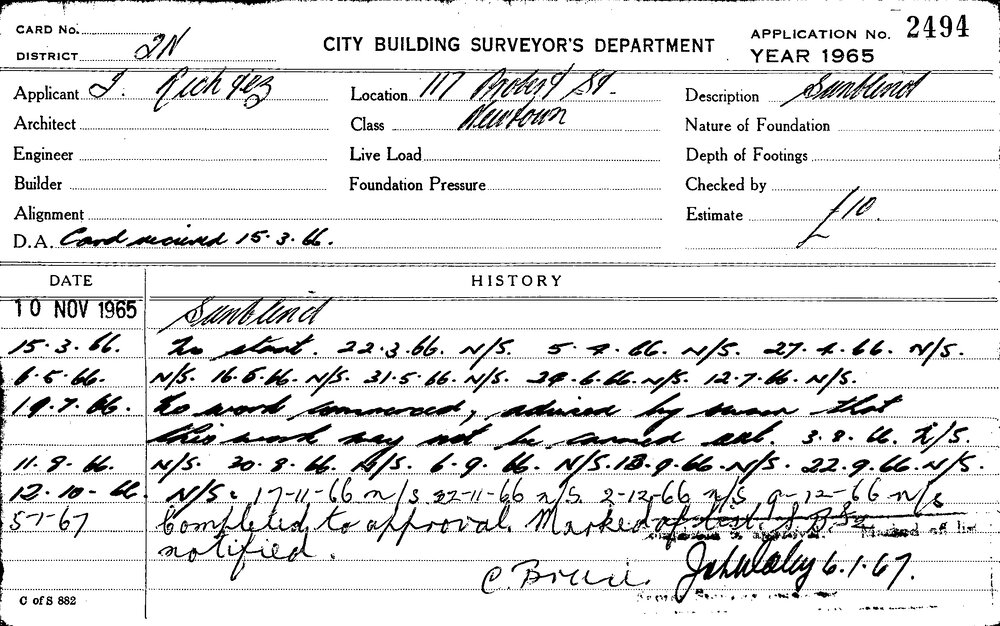 CARD No.
DISTRICT 2N
CITY BUILDING SURVEYOR'S DEPARTMENT
APPLICATION No. 2494
YEAR 1965
Applicant J.
Location 117 Probert St.
Description Sunblind
Architect
Class Newtown
Nature of Foundation
Engineer
Live Load
Depth of Footings
Builder
Foundation Pressure
Checked by
Alignment
Estimate £10.
D.A. Card received 15.3.66.
DATE HISTORY
10 NOV 1965 Sunblind
15.3.66. No start. 22.3.66. N/S. 5.4.66. N/S. 27.4.66. N/S.
6.5.66. N/S. 16.5.66. N/S. 31.5.66. N/S. 24.6.66. N/S. 12.7.66. N/S.
19.7.66. No work commenced, advised by owner that
this work may not be carried out. 3.8.66. N/S.
11.8.66. N/S. 30.8.66. N/S. 6.9.66. N/S. 13.9.66. N/S. 22.9.66. N/S.
12.10.66. N/S. 17-11-66 n/s 22-11-66 n/s 2-12-66 n/s 9-12-66 n/s
5-1-67 Completed to approval. Marked off list.
notified.
C. 6.1.67.
C of S 882